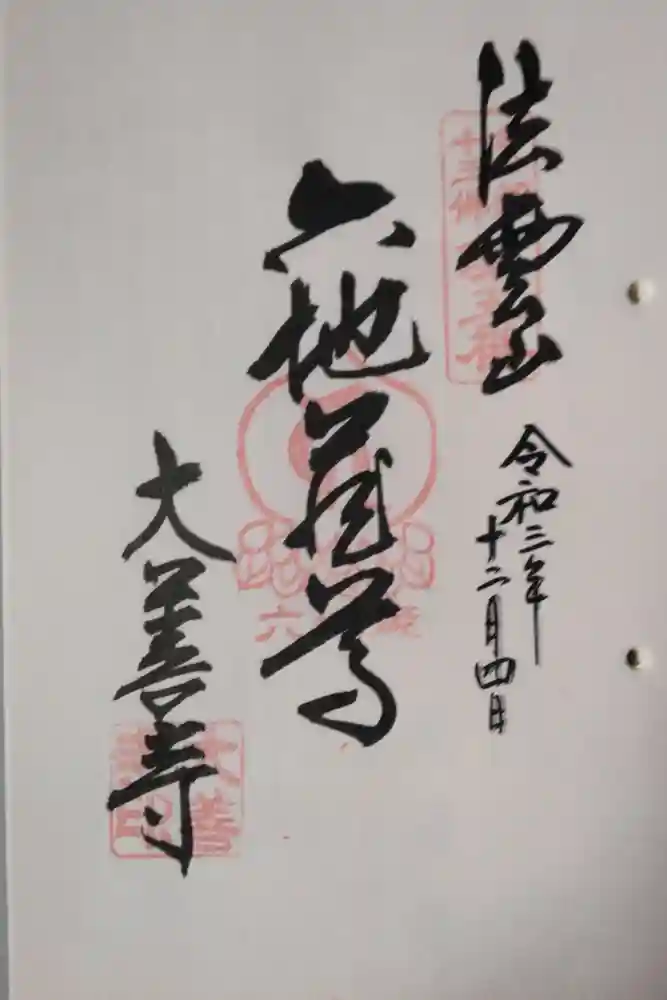 法雲山
令和三年
十二月四日
六地蔵尊
六
大善寺
大善